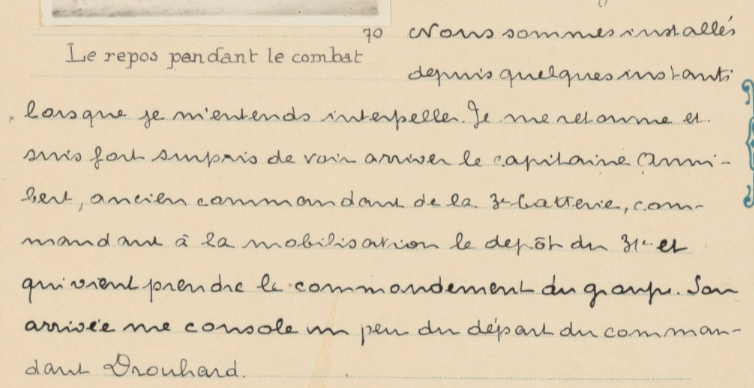 70
Le repos pendant le combat
Nous sommes installés
depuis quelques instants
lorsque je m'entends interpeller. Je me retourne et
suis fort surpris de voir arriver le capitaine Anni-
bert, ancien commandant de la 3e batterie, com-
mandant à la mobilisation le dépôt du 31e et
qui vient prendre le commandement du groupe. Son
arrivée me console un peu du départ du comman-
dant Drouhard.